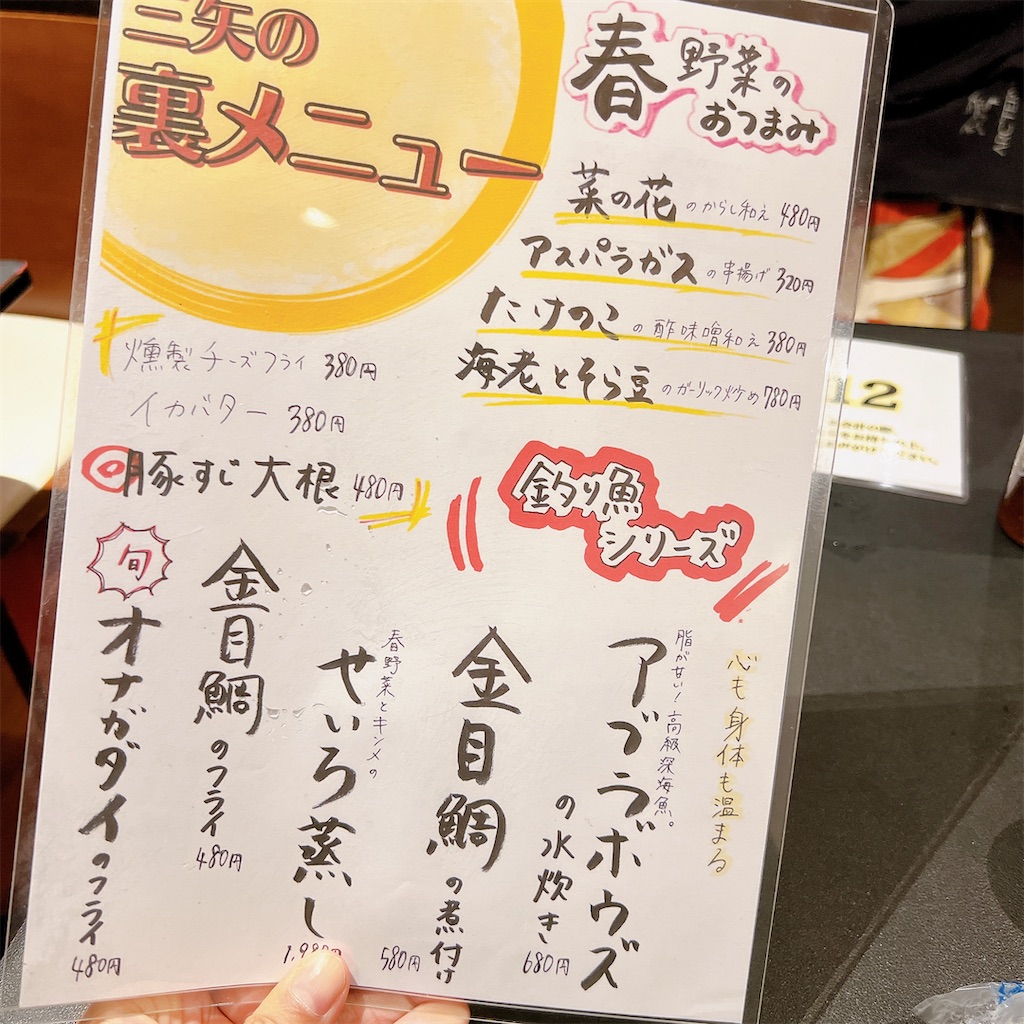 三矢の
裏メニュー
燻製チーズフライ 380円
イカバター 380円
豚すじ大根 480円
春野菜の
おつまみ
菜の花のからし和え 480円
アスパラガスの串揚げ 320円
たけのこの酢味噌和え 380円
海老とそら豆のガーリック炒め 780円
釣り魚
シリーズ
心も身体も温まる
脂が甘い!高級深海魚。
アブラボウズ
の水炊き
680円
金目鯛
の煮付け
580円
春野菜とキンメの
せいろ蒸し
金目鯛のフライ
480円
旬
オナガダイのフライ
480円
12